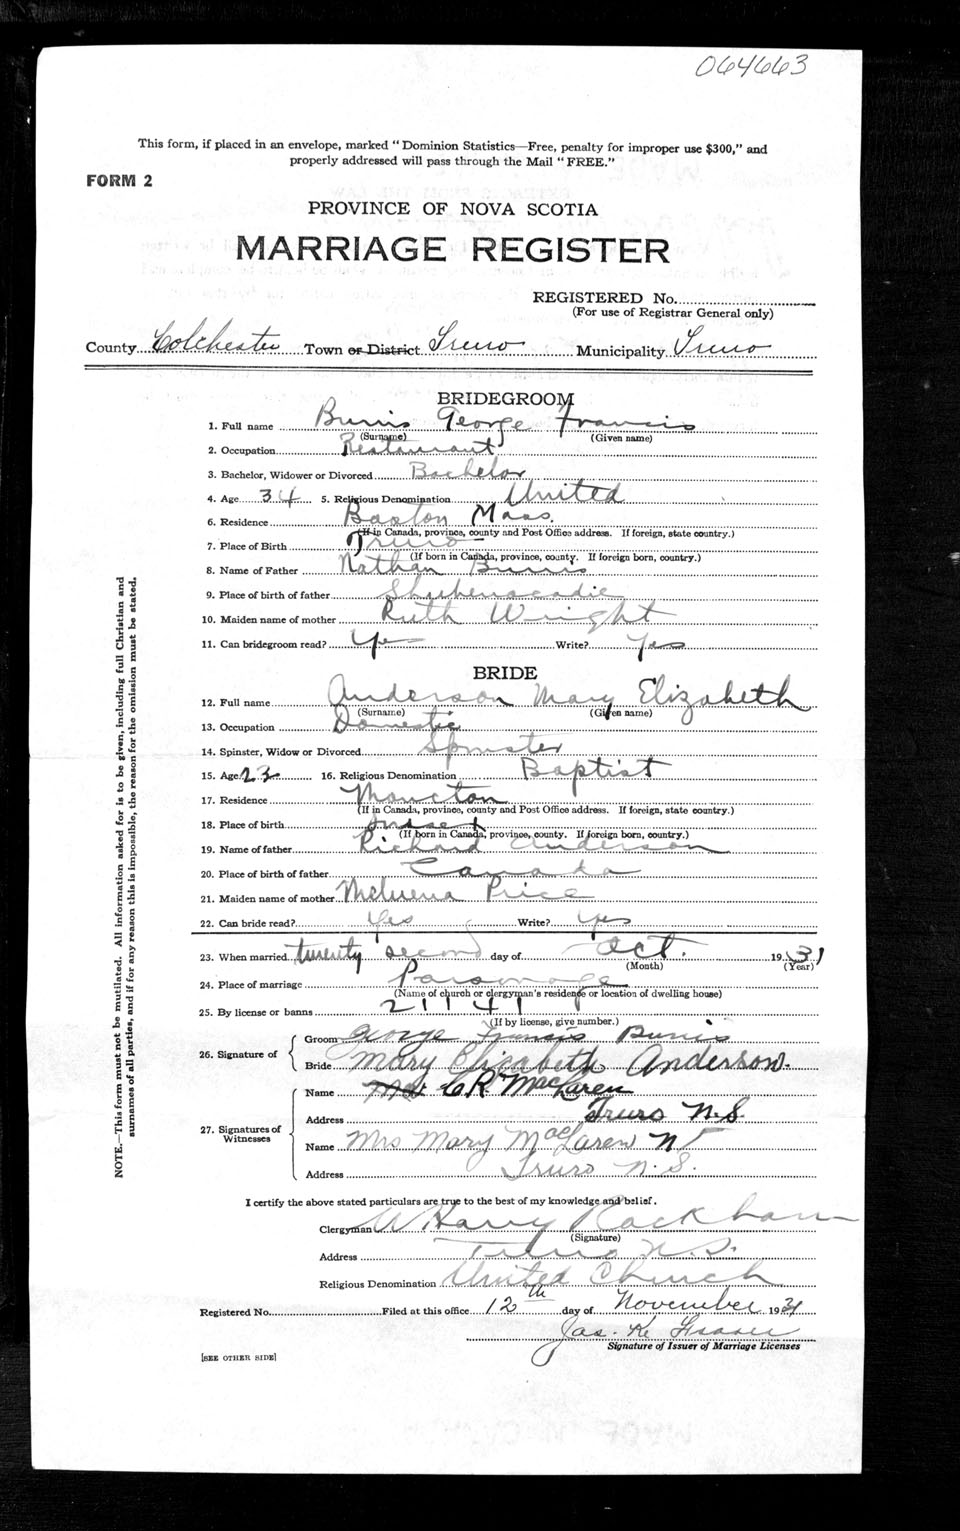 064663
This form, if placed in an envelope, marked "Dominion Statistics—Free, penalty for improper use $300," and
properly addressed will pass through the Mail "FREE."
FORM 2
PROVINCE OF NOVA SCOTIA
MARRIAGE REGISTER
REGISTERED No.
(For use of Registrar General only)
County Colchester Town or District Truro Municipality Truro
BRIDEGROOM
1. Full name Burris George Francis
(Surname) (Given name)
2. Occupation Restaurant
3. Bachelor, Widower or Divorced Bachelor
4. Age 34 5. Religious Denomination United
6. Residence Boston Mass.
(If in Canada, province, county and Post Office address. If foreign, state country.)
7. Place of Birth Truro
(If born in Canada, province, county. If foreign born, country.)
8. Name of Father Nathan Burris
9. Place of birth of father Shubenacadie
10. Maiden name of mother Ruth Wright
11. Can bridegroom read? Yes Write? Yes
BRIDE
12. Full name Anderson Mary Elizabeth
(Surname) (Given name)
13. Occupation Domestic
14. Spinster, Widow or Divorced Spinster
15. Age 23 16. Religious Denomination Baptist
17. Residence Moncton
(If in Canada, province, county and Post Office address. If foreign, state country.)
18. Place of birth
(If born in Canada, province, county. If foreign born, country.)
19. Name of father Richard Anderson
20. Place of birth of father Canada
21. Maiden name of mother Price
22. Can bride read? Yes Write? Yes
23. When married twenty second day of Oct. 1931
(Month) (Year)
24. Place of marriage Parsonage
(Name of church or clergyman's residence or location of dwelling house)
25. By license or banns 21141
(If by license, give number.)
26. Signature of
Groom George Francis Burris
Bride Mary Elizabeth Anderson.
27. Signatures of Witnesses
Name C R MacLaren
Address Truro N.S.
Name Mrs Mary MacLaren
Address Truro N.S.
I certify the above stated particulars are true to the best of my knowledge and belief.
Clergyman W Harry Rackham
(Signature)
Address Truro N.S.
Religious Denomination United Church
Registered No. Filed at this office 12th day of November 1931
Jas. K. Fraser
Signature of Issuer of Marriage Licenses
[SEE OTHER SIDE]
NOTE.—This form must not be mutilated. All information asked for is to be given, including full Christian and
surnames of all parties, and if for any reason this is impossible, the reason for the omission must be stated.